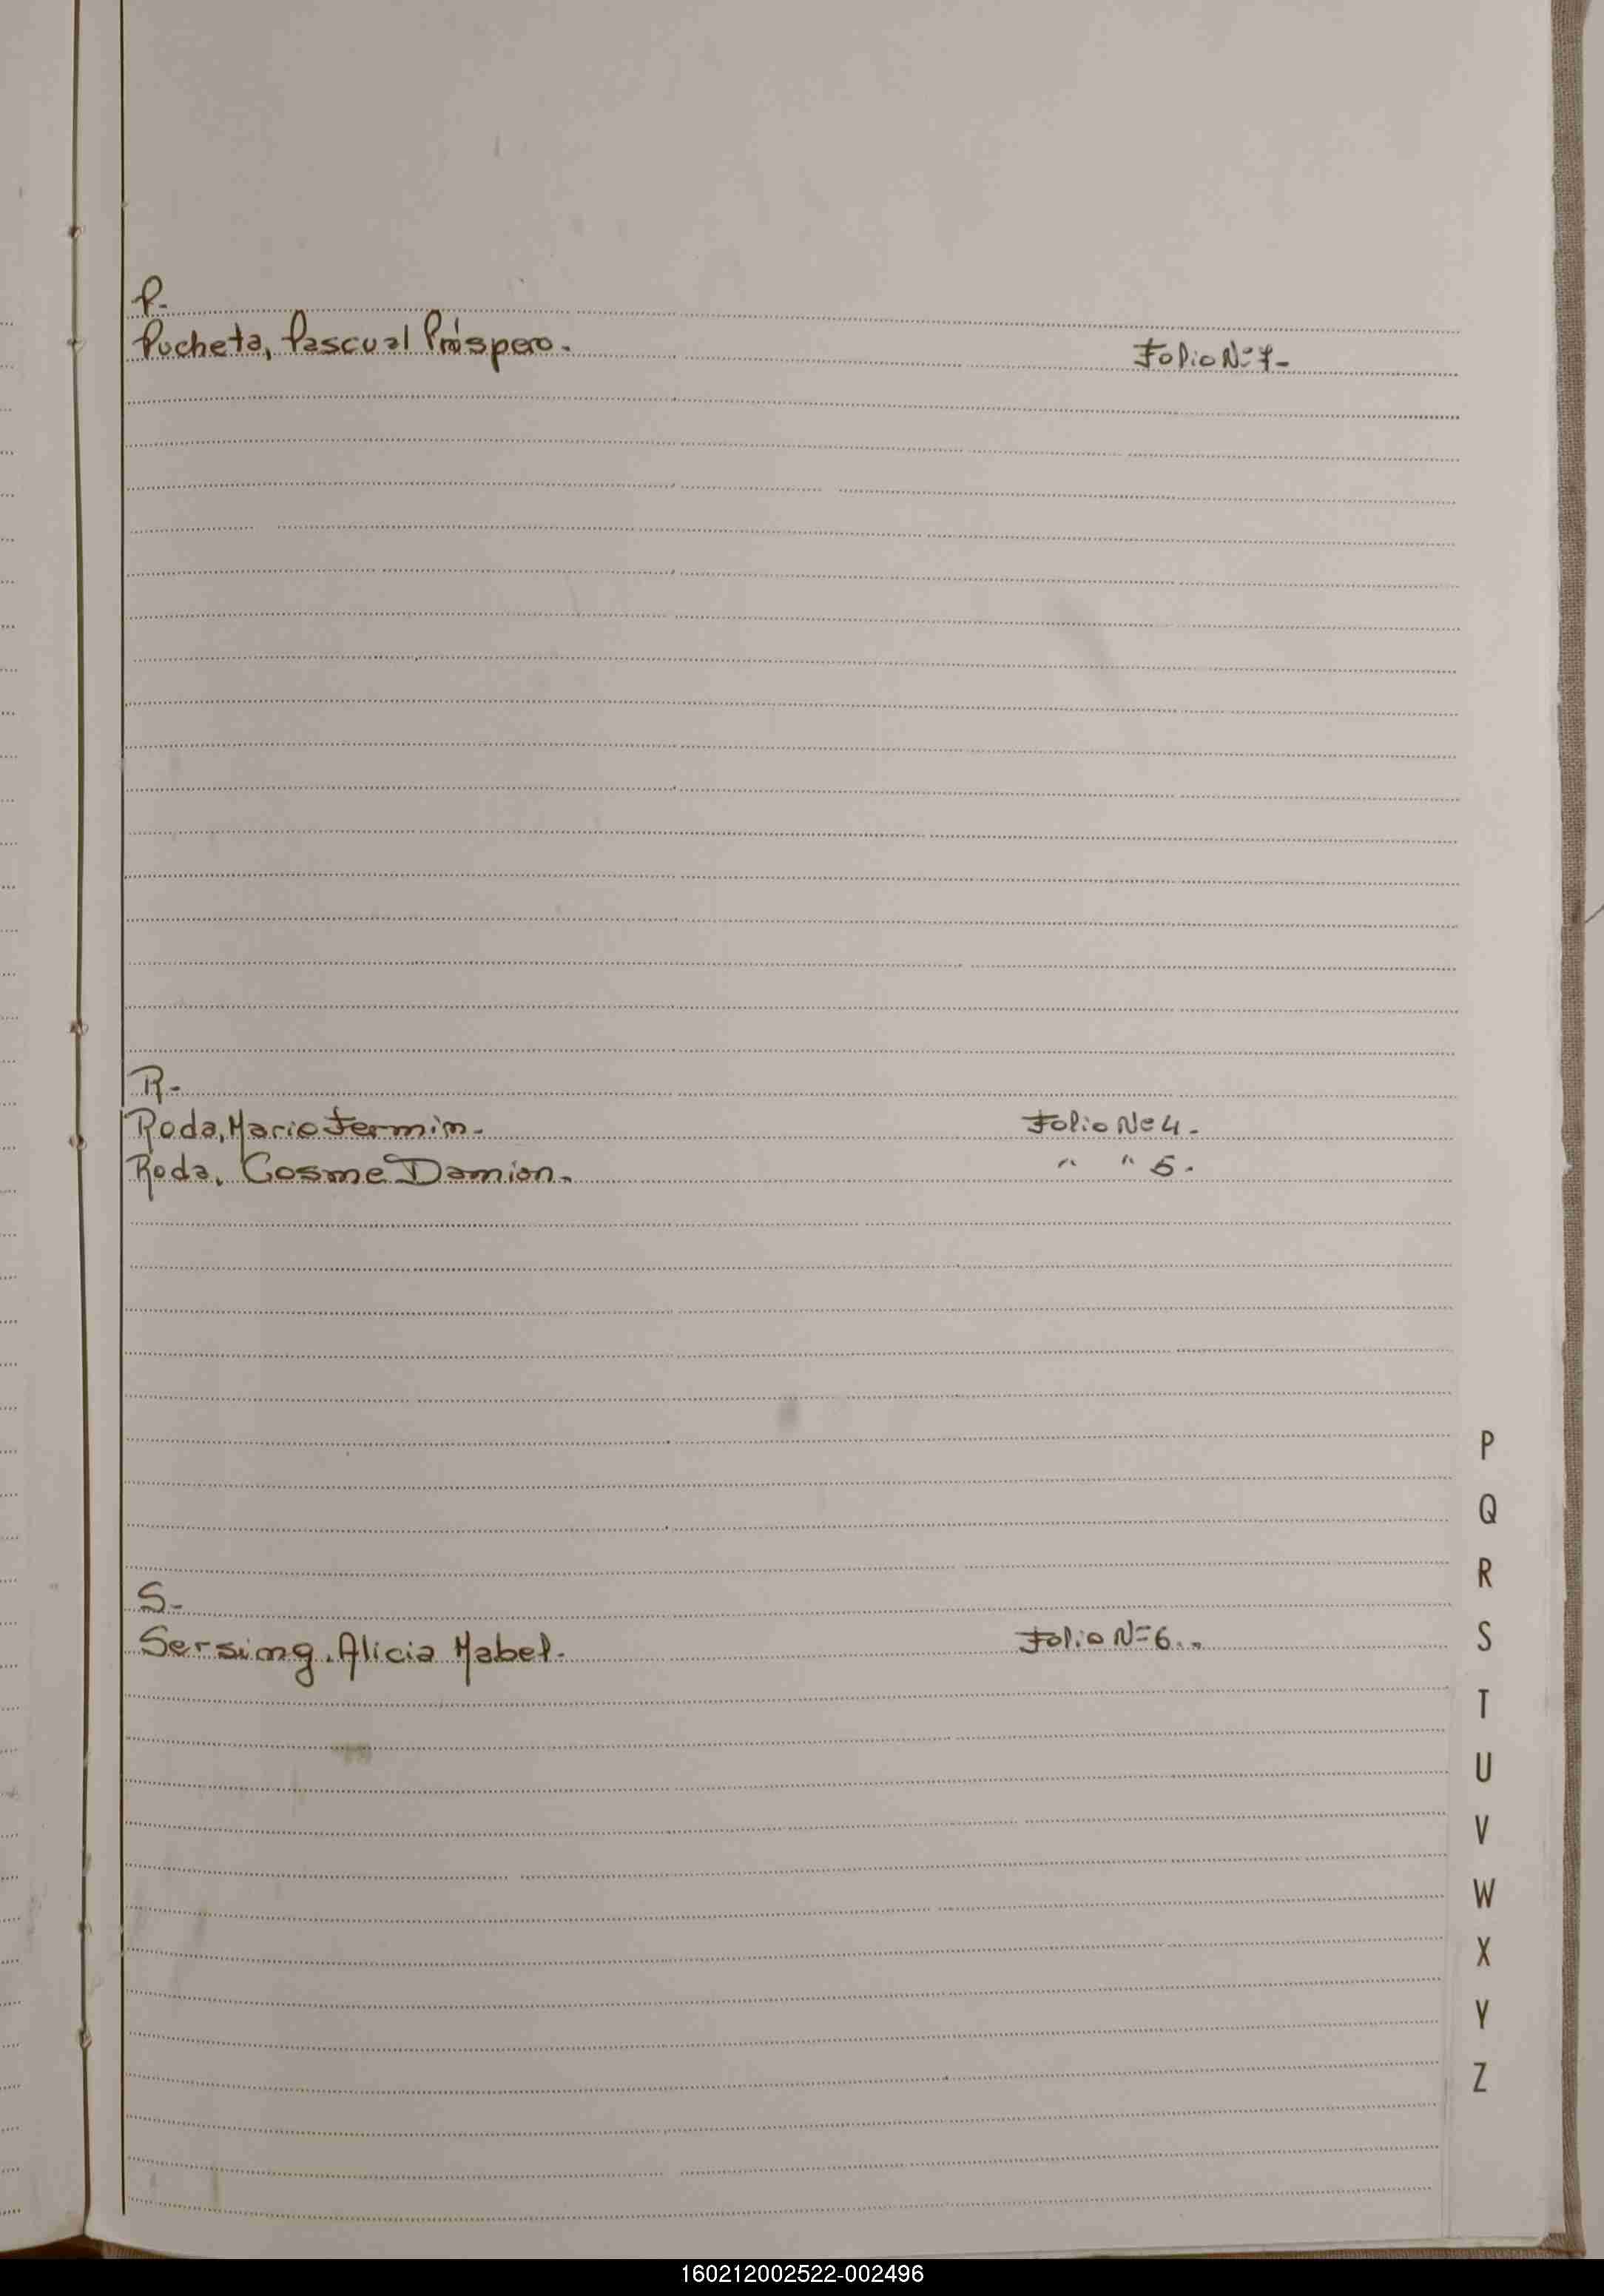 P.
Pucheta, Pascual Próspero. Folio Nº 7-
R.
Roda, Mario Fermin. Folio Nº 4.
Roda, Cosme Damian. " " 5.
S.
Sersing, Alicia Mabel. Folio Nº 6..
P
Q
R
S
T
U
V
W
X
Y
Z
160212002522-002496